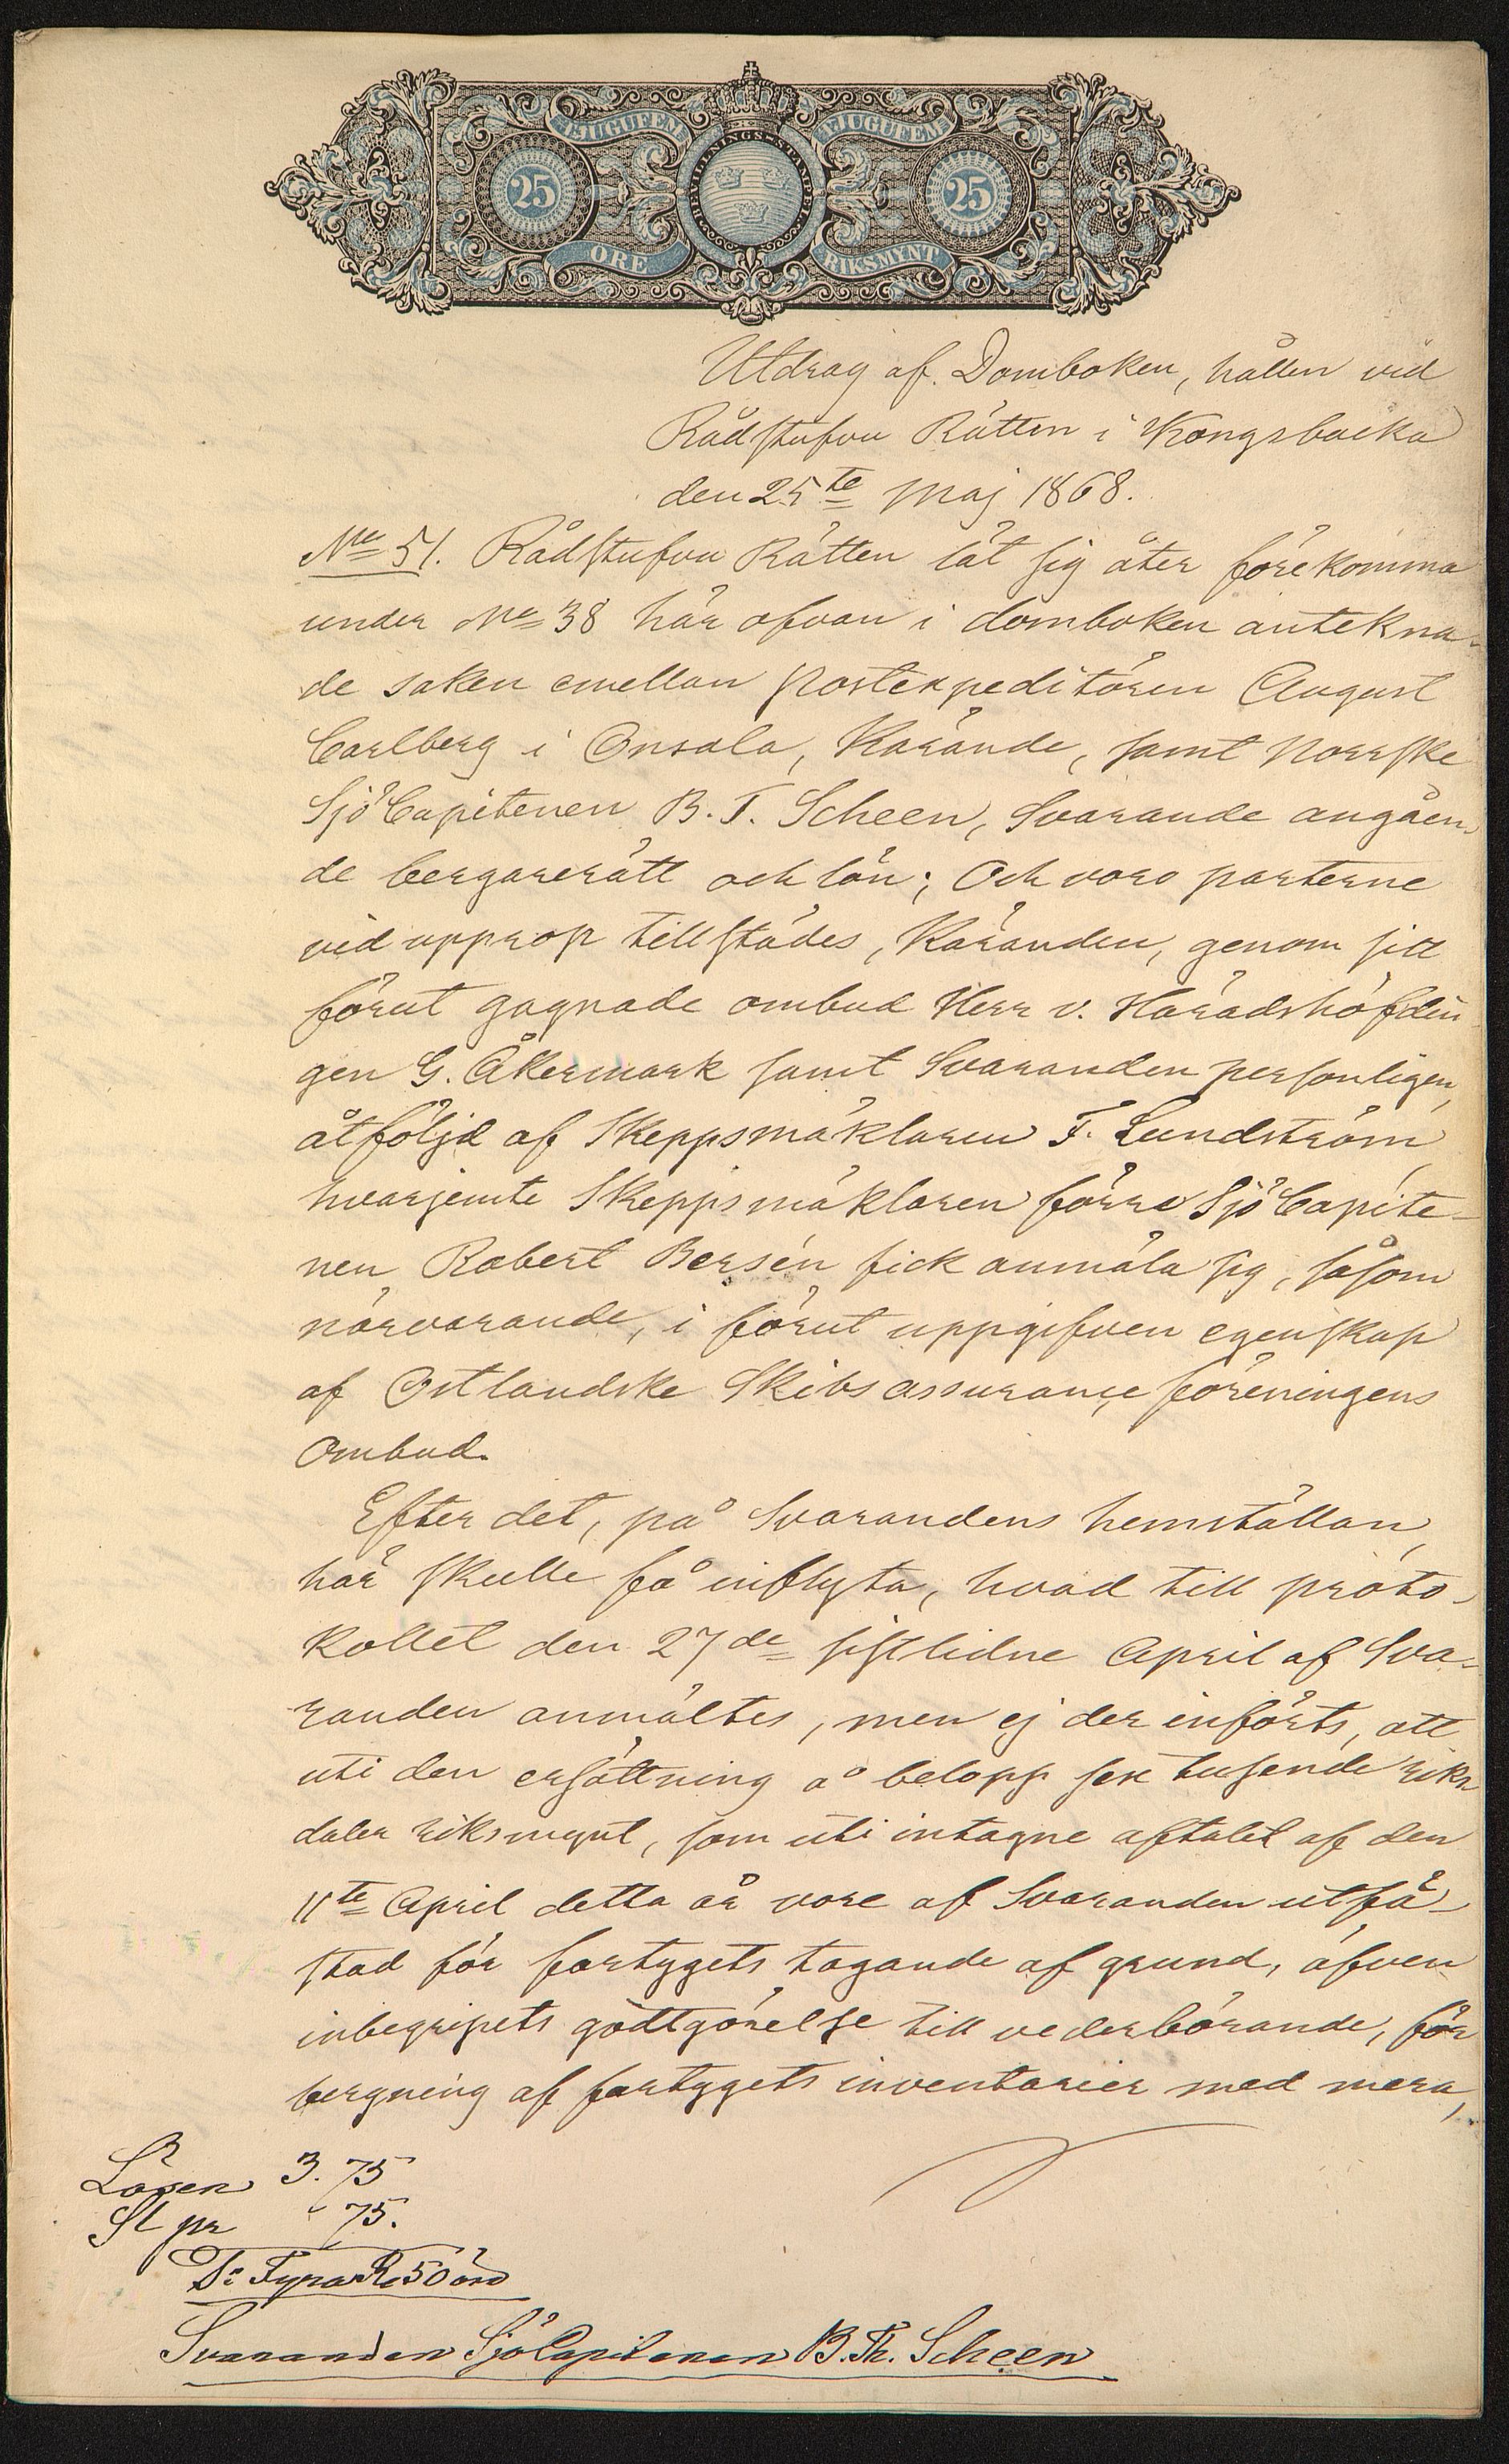 TJUGUFEM TJUGUFEM
BEVILLNINGS-STÄMPEL
25 25
ÖRE RIKSMYNT
Utdrag af Domboken, hållen vid
Rådstufvu Rätten i Kongsbacka
den 25te Maj 1868.
No 51. Rådstufvu Rätten lät sig åter förekomma
under No 38 här ofvan i domboken antekna-
de saken emellan Postexpeditören August
Carlberg i Onsala, Kärande, samt Norrske
SjöCapitenen B. T. Scheen, Svarande angåen-
de bergarerätt och lön; Och voro parterne
vid upprop tillstädes, Käranden, genom sitt
förut gagnade ombud Herr v. Häradshöfdin
gen G. Åkermark samt Svaranden personligen,
åtföljd af Skeppsmäklaren F. Lundström,
hvarjemte Skeppsmäklaren förre SjöCapite-
nen Robert Bersén fick anmäla sig, såsom
närvarande, i förut uppgifven egenskap
af Ostlandske Skibsassurance föreningens
ombud.
Efter det, på Svarandens hemställan,
här skulle få inflyta, hvad till proto-
kollet den 27de sistlidne April af Sva-
randen anmältes, men ej der införts, att
uti den ersättning å belopp sex tusende riks
daler riksmynt, som uti intagne aftalet af den
11te April detta år vore af Svaranden utfä-
stad för fartygets tagande af grund, äfven
inbegripets godtgörelse till vederbörande, för
bergning af fartygets inventarier med mera,
Lösen 3. 75
St pr " 75.
Sr Fyra Rd 50 öre
Svaranden SjöCapitenen B. Th. Scheen